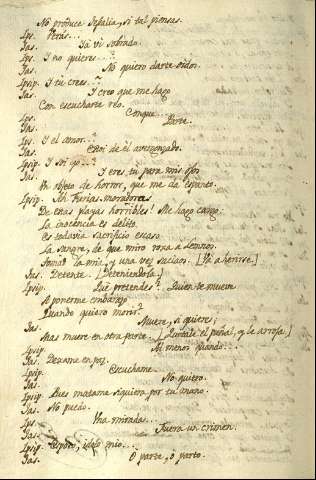 No produce Tesalia, si tal piensas.
Ips. Verás...
Jas. Ya vi sobrado.
Ips. Y no quieres....
Jas. No quiero darte oidos.
Ipsip. Y tu crees...?
Jas. Y creo que me hago
Con escucharte reo.
Ips. Conque...
Jas. Parte.
Ips. Y el amor...?
Jas. Estoi de él avergonzado.
Ipsip. Y soi yo...?
Jas. Y eres tu para mis ojos
Un objeto de horror, que me da espanto.
Ipsip. Ah Furias moradoras
De estas playas horribles! Me hago cargo:
La inocencia es delito.
Es todavia sacrificio escaso
La sangre, de que miro roxa a Lemnos.
Tomad la mia, y una vez saciaos. [Va a herirse.]
Jas. Detente. [Deteniendola.]
Ipsip. Qué pretendes? Quien te mueve
A ponerme embarazo
Quando quiero morir?
Jas. Muere, si quieres;
Mas muere en otra parte. [Quitale el puñal, y le arroja.]
Ipsip. Al menos quando....
Jas. Dexame en paz.
Ipsip. Escuchame.
Jas. No quiero.
Ipsip. Pues matame siquiera por tu mano.
Jas. No puedo.
Ips. Una mirada...
Jas. Fuera un crimen.
Ipsip. Esposo, idolo mio...
Jas. O parte, ó parto.